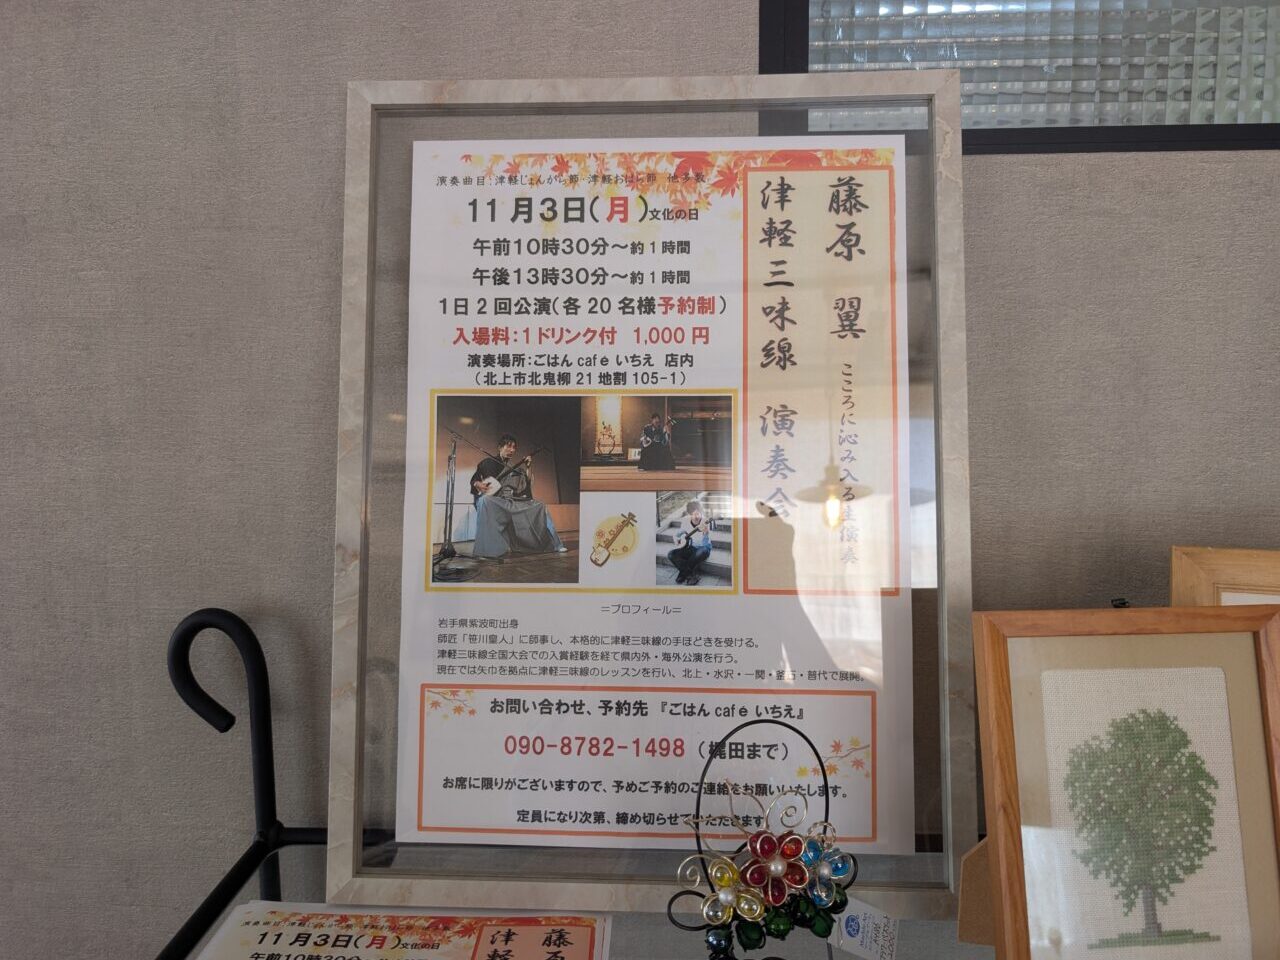 演奏曲目:津軽じょんがら節・津軽おはら節 他多数
11月3日(月)文化の日
午前10時30分~約1時間
午後13時30分~約1時間
1日2回公演(各20名様予約制)
入場料:1ドリンク付 1,000円
演奏場所:ごはん cafe いちえ 店内
(北上市北鬼柳21地割105-1)
藤原 翼 こころに沁み入る生演奏
津軽三味線 演奏会
=プロフィール=
岩手県紫波町出身
師匠「笹川皇人」に師事し、本格的に津軽三味線の手ほどきを受ける。
津軽三味線全国大会での入賞経験を経て県内外・海外公演を行う。
現在では矢巾を拠点に津軽三味線のレッスンを行い、北上・水沢・一関・釜石・普代で展開。
お問い合わせ、予約先 『ごはん cafe いちえ』
090-8782-1498 (梶田まで)
お席に限りがございますので、予めご予約のご連絡をお願いいたします。
定員になり次第、締め切らせていただきます
演奏曲目:津軽じょんがら節・津軽おはら節 他多数
11月3日(月)文化の日
午前10時30分~約1時間
藤原
津軽